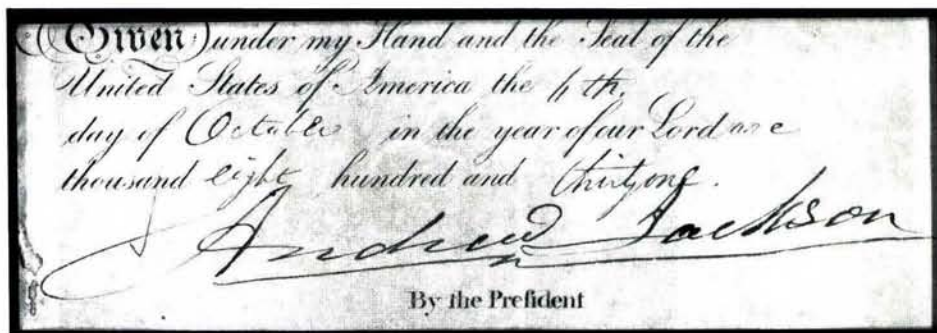 Given under my Hand and the Seal of the
United States of America the 6th.
day of October in the year of our Lord one
thousand eight hundred and thirty one.
Andrew Jackson
By the Preſident